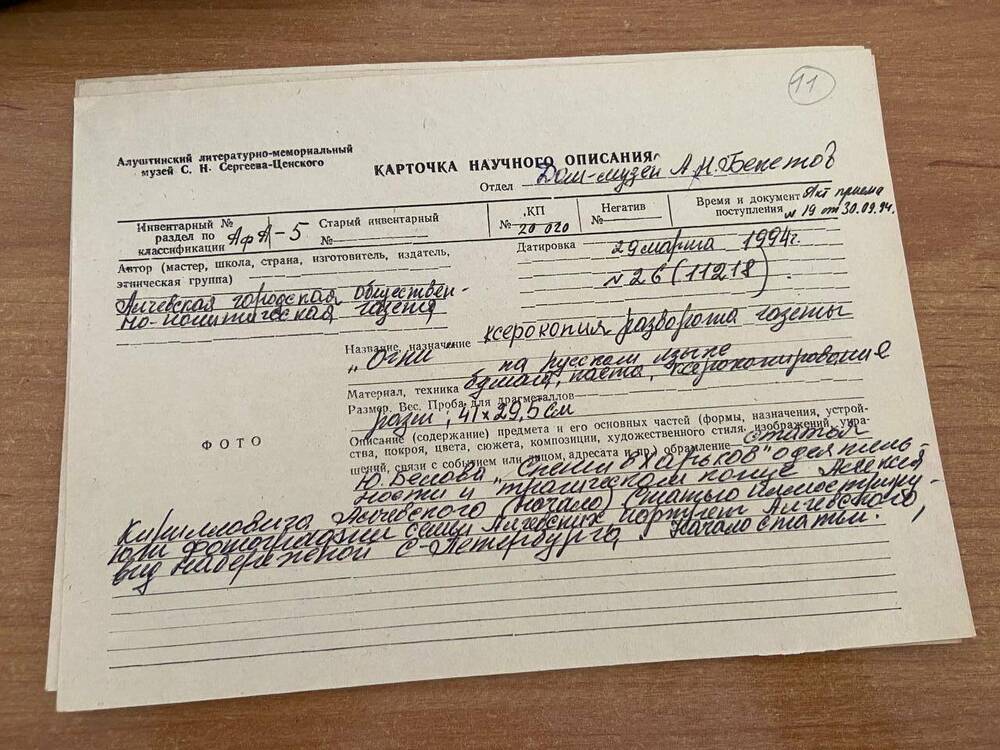 11
Алуштинский литературно-мемориальный
музей С. Н. Сергеева-Ценского
КАРТОЧКА НАУЧНОГО ОПИСАНИЯ
Отдел Дом-музей А.Н.Бекетов
Инвентарный №
раздел по
классификации АфА-5
Старый инвентарный
№
КП
№ 20 020
Негатив
№
Время и документ Акт приема
поступления № 19 от 30.09.94.
Автор (мастер, школа, страна, изготовитель, издатель,
этническая группа)
Алчевская городская обществен-
но-политическая газета
Датировка 29 марта 1994г.
№ 26 (11218)
Название, назначение ксерокопия разворота газеты
„Огни" на русском языке
Материал, техника бумага, паста, ксерокопирование
Размер. Вес. Проба для драгметаллов
разм; 41 х 29,5 см
ФОТО
Описание (содержание) предмета и его основных частей (формы, назначения, устрой-
ства, покроя, цвета, сюжета, композиции, художественного стиля, изображений, укра-
шений, связи с событием или лицом, адресата и пр.) обрамление статья
Ю. Белова „Спеши в Харьков" о деятель-
ности и трагическом конце Алексея
Кирилловича Алчевского (начало). Статью иллюстриру-
ют фотографии семьи Алчевских, портрет Алчевского,
вид набережной С-Петербурга. Начало статьи.